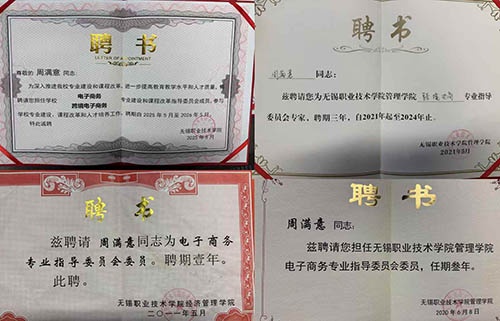 聘书
LETTER OF APPOINTMENT
尊敬的 周满意 同志:
为深入推进我校专业建设和课程改革,进一步提高教育教学水平和人才质量,
聘请您担任学校 电子商务
跨境电子商务 专业建设和课程改革指导委员会成员,参与
学校专业建设、课程改革和人才培养工作,聘期自2021年5月至2024年5月。
特此承诺
无锡职业技术学院
聘书
周满意 同志:
兹聘请您为无锡职业技术学院管理学院 专业指导
委员会专家,聘期三年,自2021年起至2024年止。
无锡职业技术学院管理学院
2021年8月
聘书
兹聘请 周满意同志为电子商务
专业指导委员会委员。聘期壹年。
此聘。
无锡职业技术学院经济管理学院
二〇一一年五月
聘书
周满意 同志:
兹聘请您担任无锡职业技术学院管理学院
电子商务专业指导委员会委员,任期叁年。
无锡职业技术学院管理学院
2020年6月8日